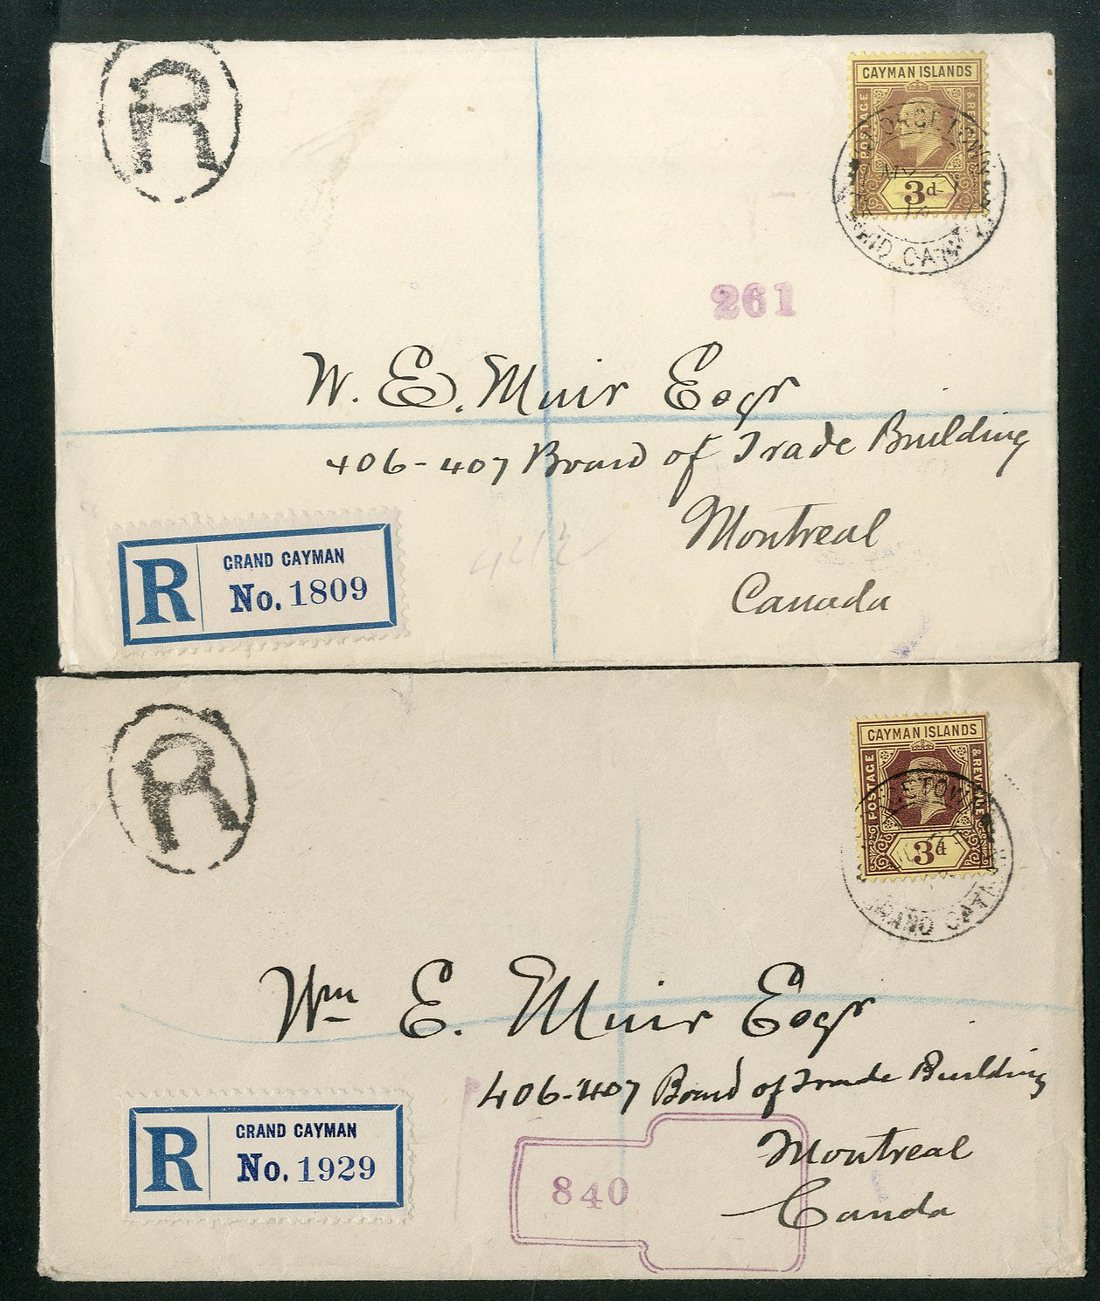 R
CAYMAN ISLANDS
POSTAGE
& REVENUE
3d
261
W. E. Muir Esqr
406-407 Board of Trade Building
Montreal
Canada
R
GRAND CAYMAN
No. 1809
R
CAYMAN ISLANDS
POSTAGE
& REVENUE
3d
Wm E. Muir Esqr
406-407 Board of Trade Building
Montreal
Canda
R
GRAND CAYMAN
No. 1929
840